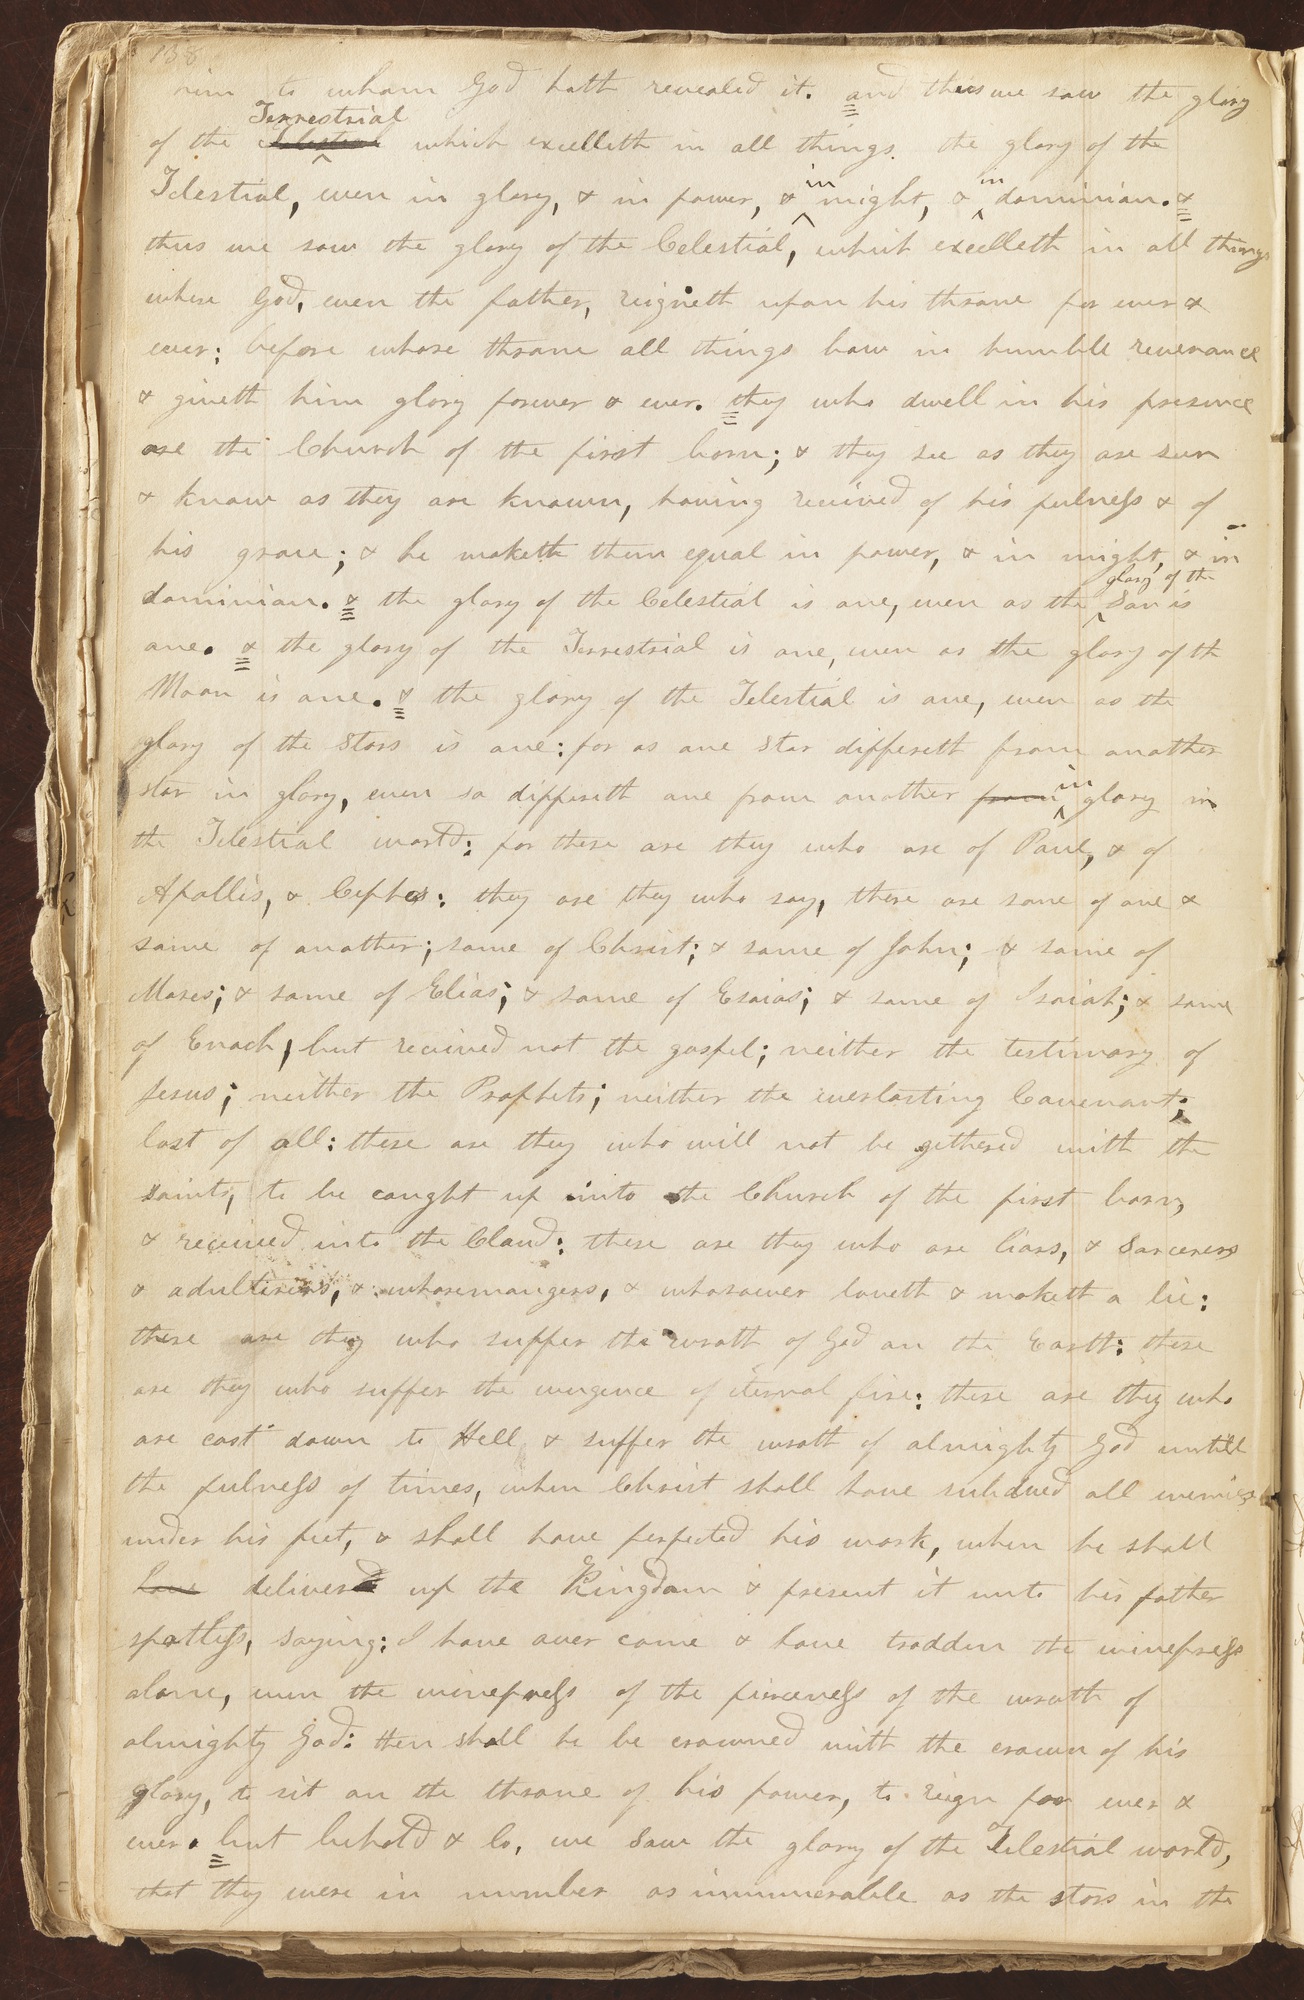 138
him to whom God hath revealed it. and thus we saw the glory
Terrestrial
of the Celestial which excelleth in all things. the glory of the
in in
Telestial, even in glory, & in power, & might, & dominion. &
thus we saw the glory of the Celestial, which excelleth in all things
where God, even the father, reigneth upon his throne for ever &
ever; before whose throne all things bow in humble reverance
& giveth him glory forever & ever. they who dwell in his presence
are the Church of the first born; & they see as they are seen
& know as they are known, having received of his fulness & of
his grace; & he maketh them equal in power, & in might, & in
glory of the
dominion. & the glory of the Celestial is one, even as the Son is
one. & the glory of the Terrestrial is one, even as the glory of th
Moon is one. & the glory of the Telestial is one, even as the
glory of the Stars is one: for as one star differeth from another
in
star in glory, even so differeth one from another from glory in
the Telestial world: for these are they who are of Paul, & of
Apollis, & Cephas: they are they who say, there are some of one &
some of another; some of Christ; & some of John; & some of
Moses; & some of Elias; & some of Esaias; & some of Isaiah; & some
of Enoch, but received not the gospel; neither the testimony of
Jesus; neither the Prophets; neither the everlasting Covenant;
last of all: these are they who will not be gethered with the
saints, to be caught up into the Church of the first born,
& received into the Cloud: these are they who are liars, & sorcerers
& adulterers, & whoremongers, & whosoever loveth & maketh a lie:
these are they who suffer the wrath of God on the Earth: these
are they who suffer the vengence of eternal fire: these are they who
are cast down to Hell & suffer the wrath of almighty God untill
the fulness of times, when Christ shall have subdued all enemies
under his feet, & shall have perfected his work, when he shall
have deliver up the Kingdom & present it unto his father
spotless, saying: I have over come & have trodden the winepress
alone, even the winepress of the fierceness of the wrath of
almighty God: then shall he be crowned with the crown of his
glory, to sit on the throne of his power, to reign for ever &
ever. but behold & lo, we saw the glory of the Telestial world,
that they were in number as innumerable as the stars in the